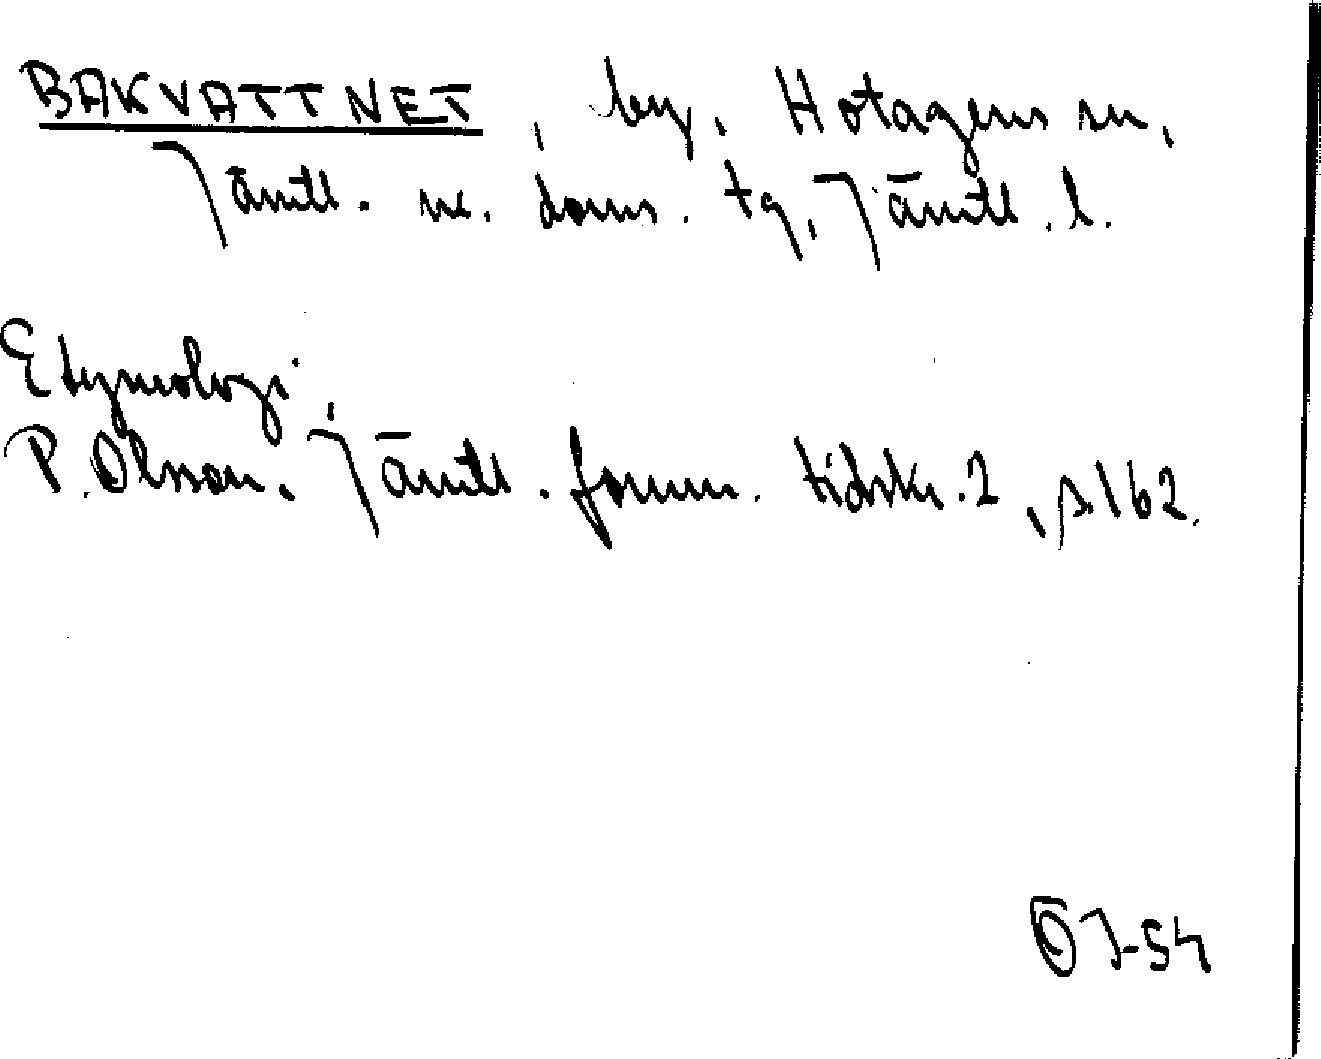 BAKVATTNET, by, Hotagens sn,
Jämtl. n. doms. tg, Jämtl. l.
Etymologi,
P. Olsson. Jämtl. fornm. tidskr. 2, s 162.
ÖJ-54